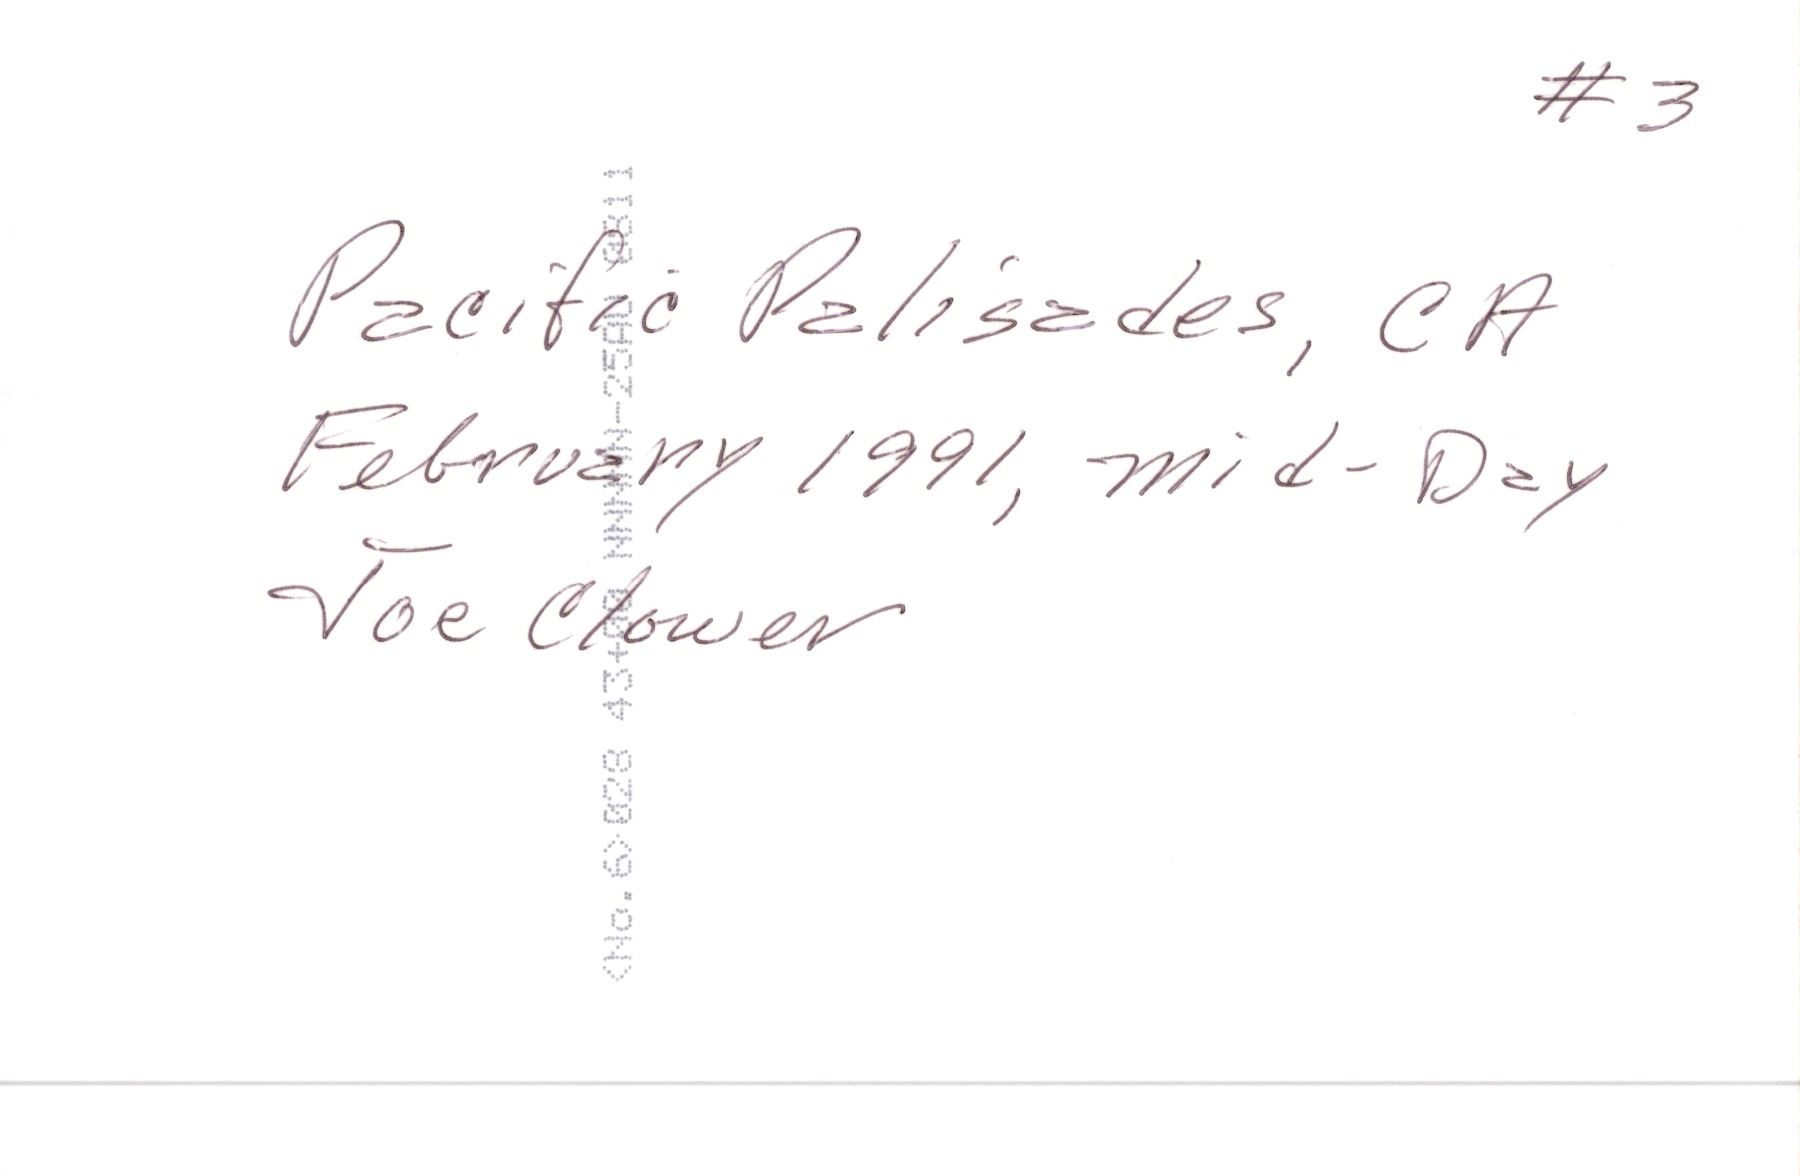 #3
Pacific Palisades, CA
February 1991, mid-Day
Joe Clower
<No. 6> 028 43+00 NNNN-25AU 0811